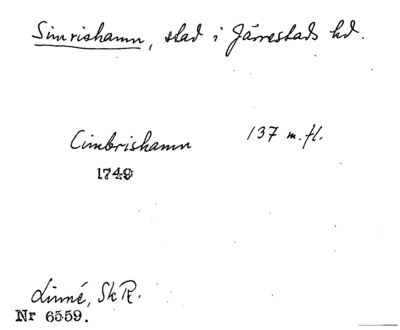 Simrishamn, stad i Järrestads hd.
Cimbrishamn 137 m. fl.
1749
Linné, Sk R.
Nr 6559.